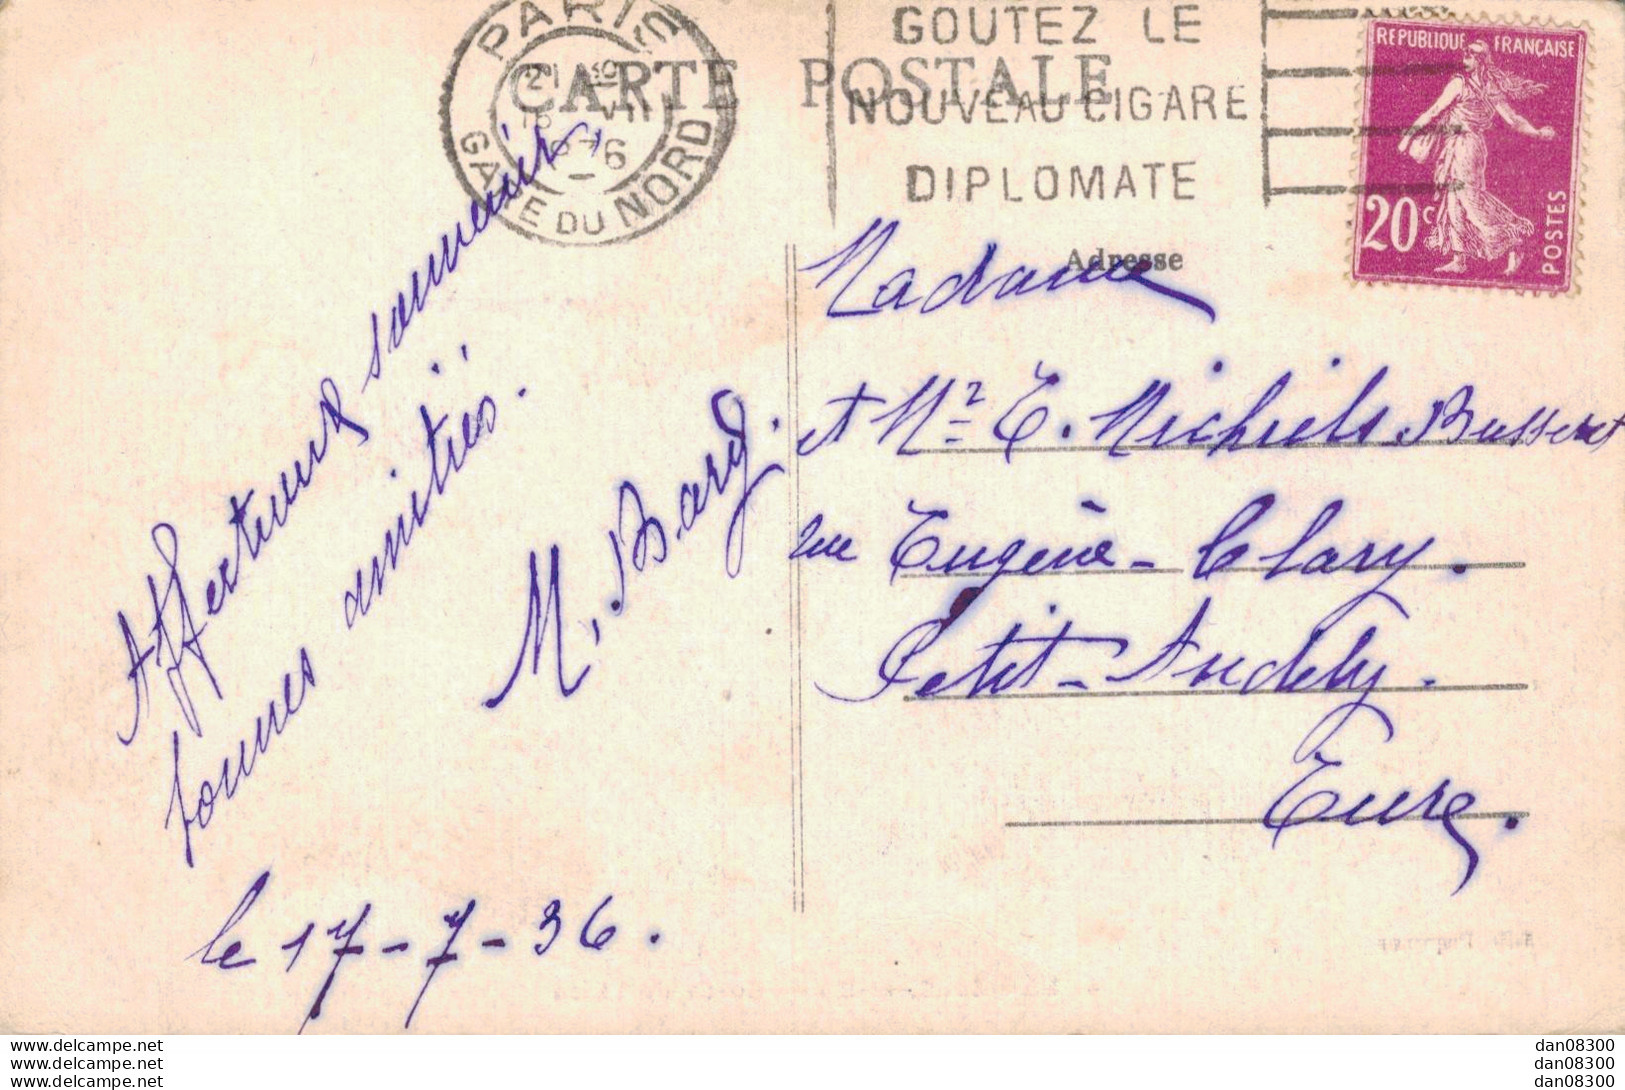 PARIS
GARE DU NORD
GOUTEZ LE
NOUVEAU CIGARE
DIPLOMATE
REPUBLIQUE FRANÇAISE
20c
POSTES
CARTE POSTALE
Adresse
Affectueux souvenirs,
bonnes amitiés.
M. Bary.
le 17-7-36.
Madame
et Mr E. Michiels. Busseret
rue Eugène-Clary.
Petit-Andely.
Eure.
www.delcampe.net
www.delcampe.net
www.delcampe.net
dan08300
dan08300
dan08300